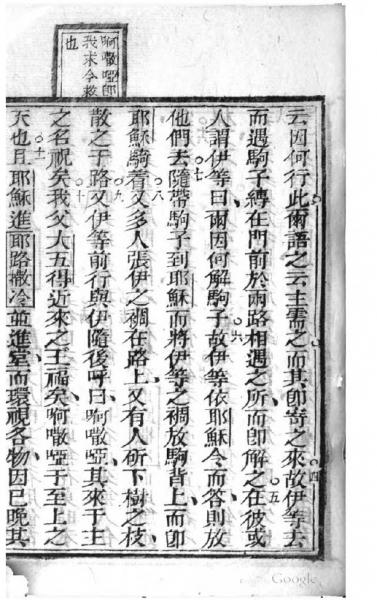 啊㗔啞即
我求今救
也
云因何行此爾語之云主需之而其即寄之來四故伊等去
而遇駒子縛在門前於兩路相遇之所而即解之五在彼或
人謂伊等曰爾因何解駒子六故伊等依耶穌令而答則放
他們去七隨帶駒子到耶穌而將伊等之裯放駒背上而即
耶穌騎着八又多人張伊之裯在路上又有人斫下樹之枝
散之于路九又伊等前行與伊隨後呼曰啊㗔啞其來于主
之名祝矣十我父大五得近來之王福矣啊㗔啞于至上之
天也十一且耶穌進耶路撒冷並進堂而環視各物因已晚其
Google